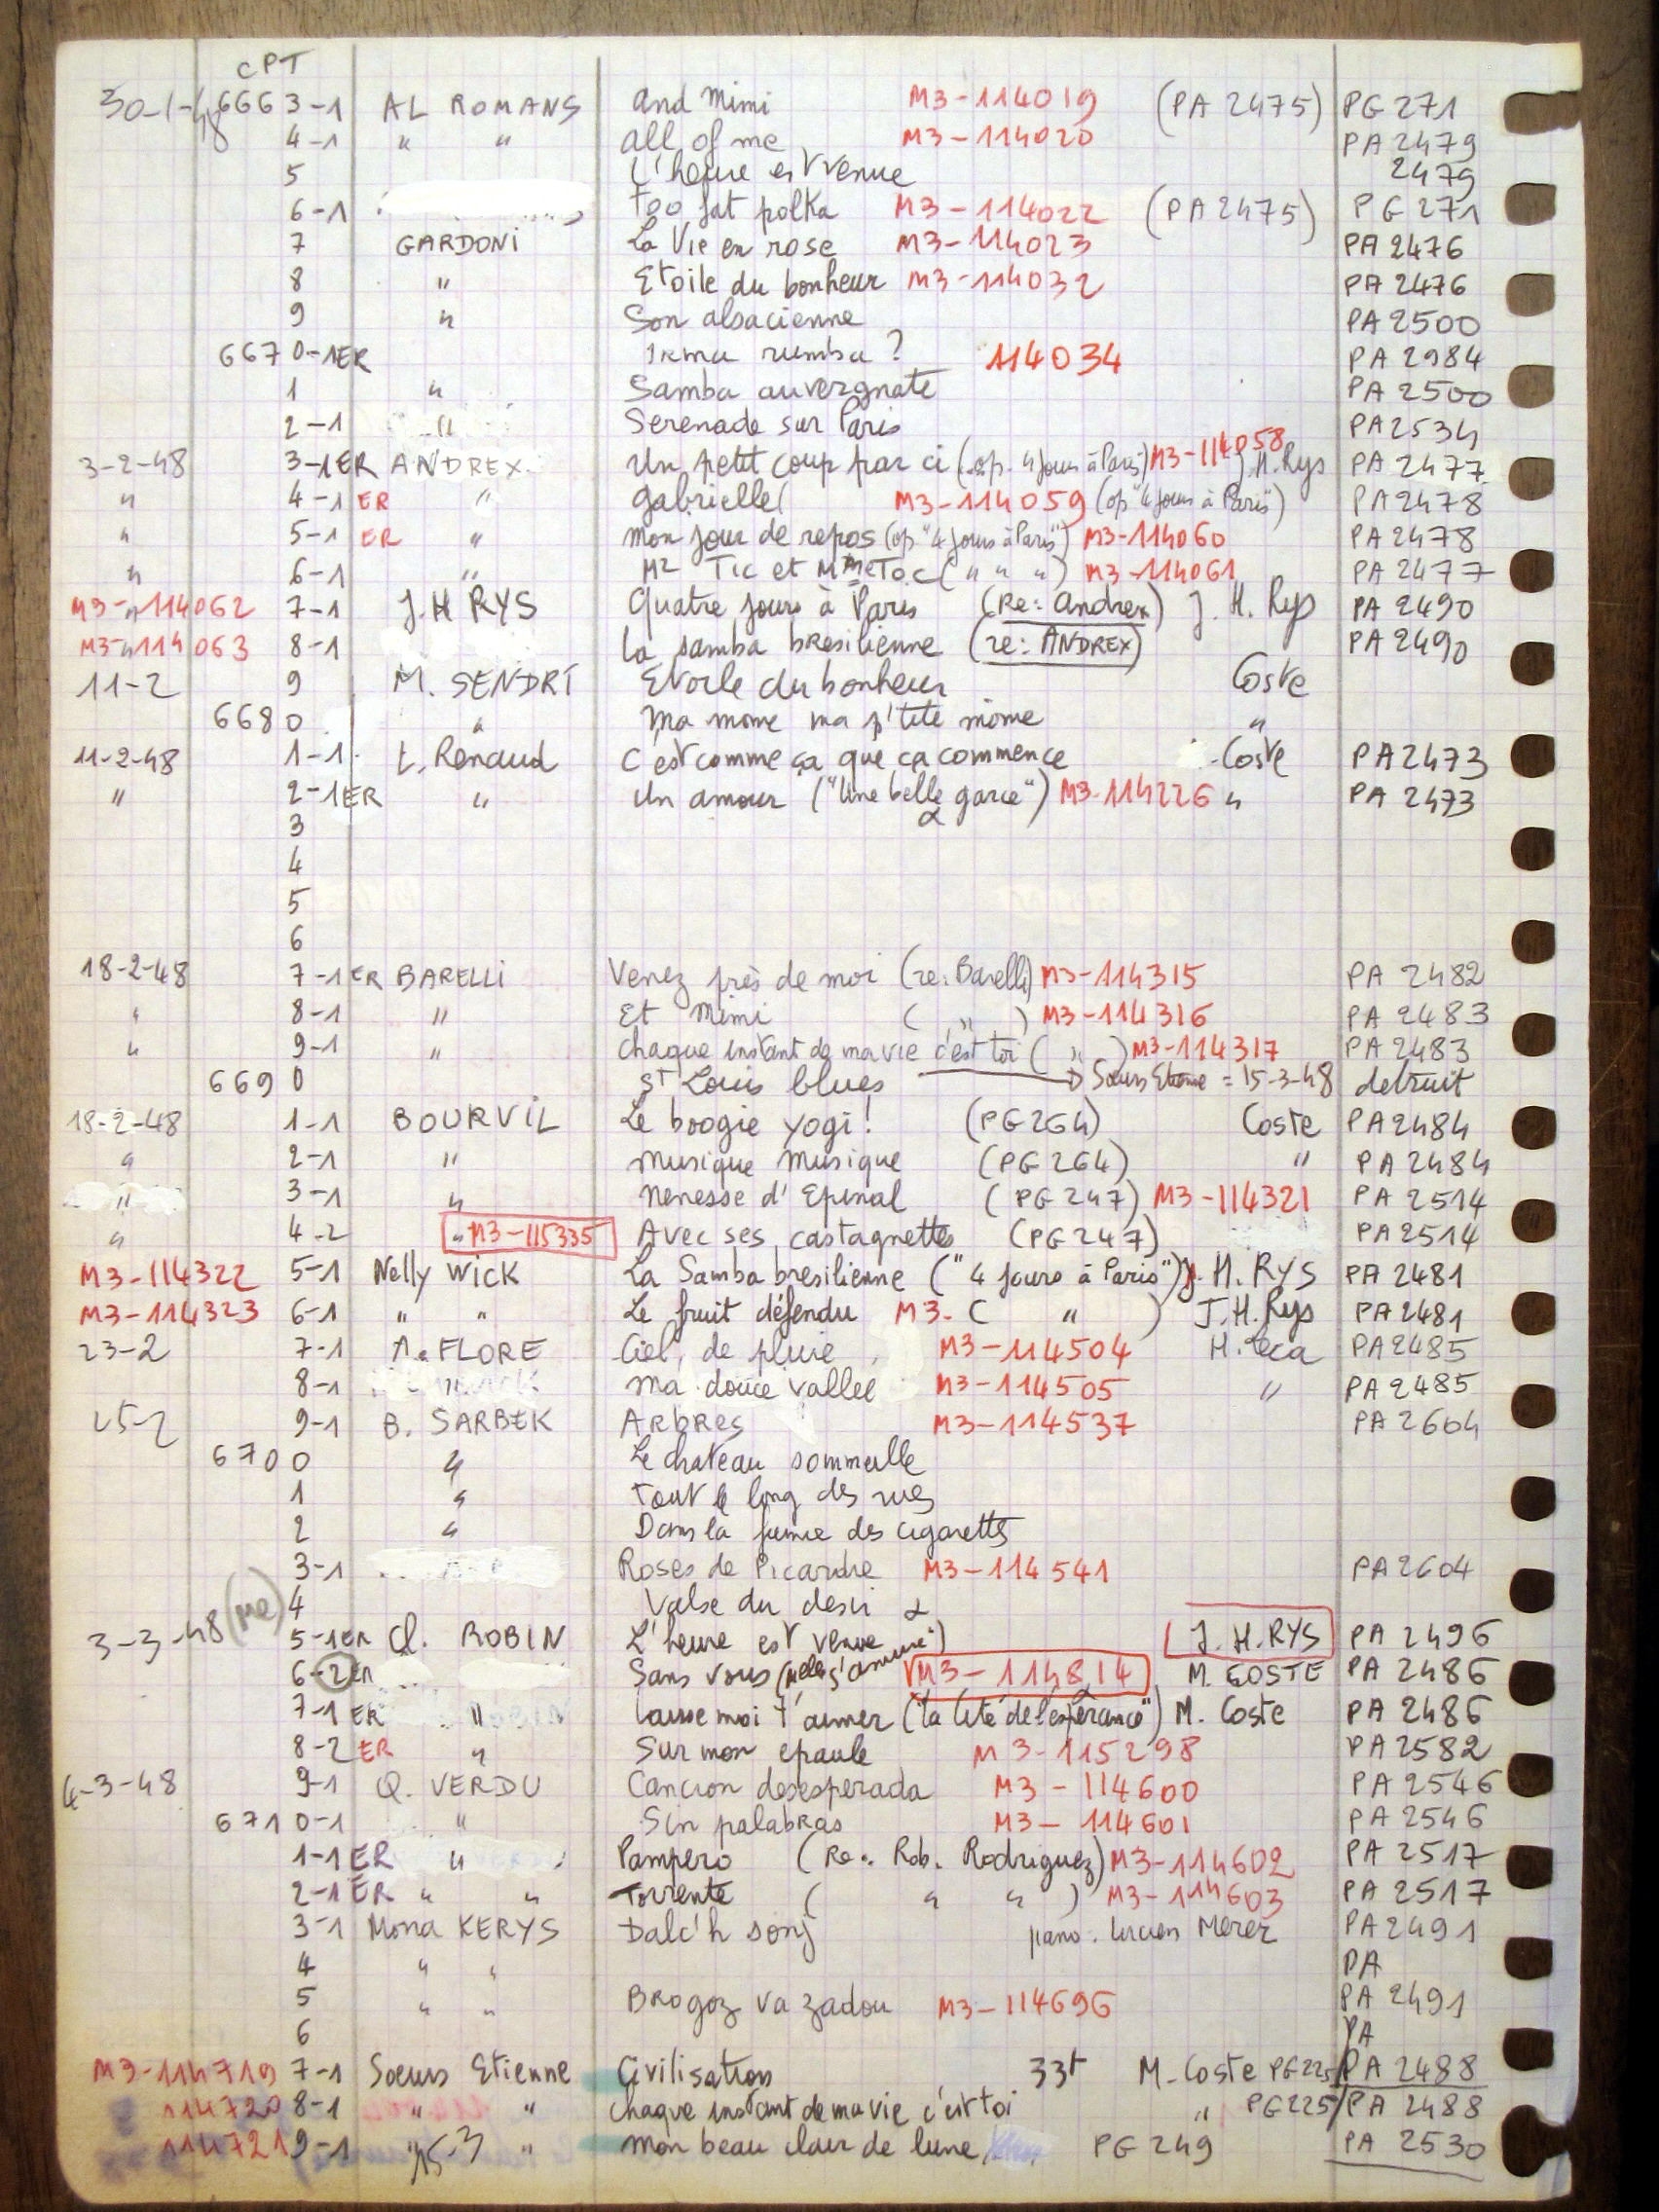 CPT
30-1-48 666 3-1 AL ROMANS and Mimi M3-114019 (PA 2475) PG 271
4-1 " " all of me M3-114020 PA 2479
5 L'heure est venue 2479
6-1 too fat polka M3-114022 (PA 2475) PG 271
7 GARDONI La Vie en rose M3-114023 PA 2476
8 " Etoile du bonheur M3-114032 PA 2476
9 " Son alsacienne PA 2500
667 0-1ER Irma rumba ? 114034 PA 2984
1 " Samba auvergnate PA 2500
2-1 " Serenade sur Paris PA 2534
3-2-48 3-1ER ANDREX Un petit coup par ci (op. 4 jours à Paris) M3-114058 J.H. Rys PA 2477
" 4-1 ER " Gabrielle ( M3-114059 (op "4 jours à Paris") PA 2478
" 5-1 ER " mon jour de repos (op "4 jours à Paris") M3-114060 PA 2478
" 6-1 " Mr Tic et Mme Toc ( " " " ) M3-114061 PA 2477
M3-114062 7-1 J.H RYS Quatre jours à Paris (Re: Andrex) J. H. Rys PA 2490
M3-114063 8-1 La samba bresilienne (re: ANDREX) PA 2490
11-2 9 M. SENDRI Etoile du bonheur Coste
668 0 " Ma mome ma p'tite môme "
11-2-48 1-1 L. Renaud C'est comme ça que ça commence Coste PA 2473
" 2-1ER " Un amour ("Une belle garce") M3-114226 " PA 2473
3
4
5
6
18-2-48 7-1ER BARELLI Venez près de moi (re: Barelli) M3-114315 PA 2482
" 8-1 " Et Mimi ( " ) M3-114316 PA 2483
" 9-1 " Chaque instant de ma vie c'est toi ( " ) M3-114317 PA 2483
669 0 St Louis blues Sœurs Etienne = 15-3-48 detruit
18-2-48 1-1 BOURVIL Le boogie yogi ! (PG 264) Coste PA 2484
" 2-1 " Musique musique (PG 264) " PA 2484
" 3-1 " Nenesse d'Epinal (PG 247) M3-114321 PA 2514
" 4-2 " M3-115335 Avec ses castagnettes (PG 247) PA 2514
M3-114322 5-1 Nelly WICK La Samba bresilienne ("4 jours à Paris") J. H. RYS PA 2481
M3-114323 6-1 " " Le fruit défendu M3- ( " ) J.H. Rys PA 2481
23-2 7-1 A. FLORE Ciel de pluie M3-114504 H. Leca PA 2485
8-1 Ma douce vallée M3-114505 " PA 2485
25-2 9-1 B. SARBEK ARBRES M3-114537 PA 2604
670 0 " Le chateau sommeille
1 " Tout le long des rues
2 " Dans la fumée des cigarettes
3-1 Roses de Picardie M3-114541 PA 2604
4 Valse du desir
3-3-48 (me) 5-1ER Cl. ROBIN L'heure est venue J. H. RYS PA 2496
6-2ER Sans vous (Melle s'amuse") M3-114814 M. COSTE PA 2486
7-1 ER " Laisse moi t'aimer ("La Cité de l'espérance") M. Coste PA 2486
8-2 ER " Sur mon epaule M3-115298 PA 2582
4-3-48 9-1 Q. VERDU Cancion desesperada M3-114600 PA 2546
671 0-1 " Sin palabras M3-114601 PA 2546
1-1 ER " Pampero (Re: Rob. Rodriguez) M3-114602 PA 2517
2-1 ER " " Torrente ( " " ) M3-114603 PA 2517
3-1 Mona KERYS Dalc'h sonj piano: Lucien Merer PA 2491
4 " " PA
5 " " Brogoz va zadou M3-114696 PA 2491
6 PA
M3-114719 7-1 Soeurs Etienne Civilisation 33t M. Coste PG 225/PA 2488
114720 8-1 " " Chaque instant de ma vie c'est toi " PG 225/PA 2488
114721 9-1 " 15-3 " Mon beau clair de lune PG 249 PA 2530